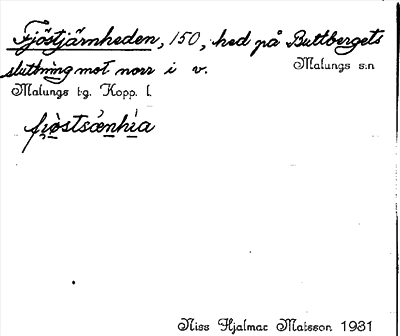 Fjöstjärnheden, 150, hed på Buttbergets
sluttning mot norr i v. Malungs s:n
Malungs tg. Kopp. l.
fjòstsǽnhia
Niss Hjalmar Matsson 1931